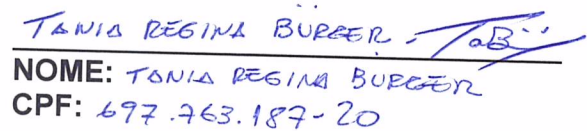 TANIA REGINA BURGER
NOME: TANIA REGINA BURGER
CPF: 697.763.187-20